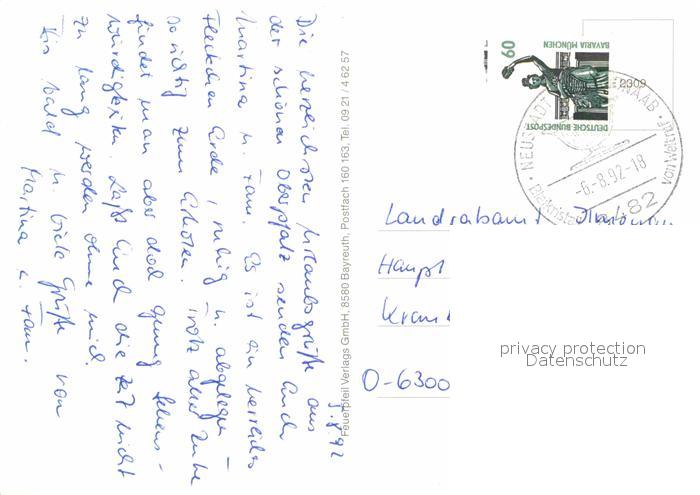 5.8.92
Die herzlichsten Urlaubsgrüße aus
der schönen Oberpfalz senden Euch
Martina u. Fam. Es ist ein herrliches
Fleckchen Erde, ruhig u. abgelegen
so richtig zum Erholen. Trotz aller Ruhe
findet man aber doch genug Sehens-
würdigkeiten. Laßt Euch die Zeit nicht
zu lang werden ohne mich.
Bis bald u. viele Grüße von
Martina u. Fam.
Feuerpfeil Verlags GmbH, 8580 Bayreuth, Postfach 160 163, Tel. 09 21 / 4 62 57
60
BAVARIA MÜNCHEN
DEUTSCHE BUNDESPOST
2309
NEUSTADT
WALDNAAB
-6.-8.92-18
Bleikristall
von Weltruf
82
Landratsamt
Haupt
Kran
O-6300
privacy protection
Datenschutz